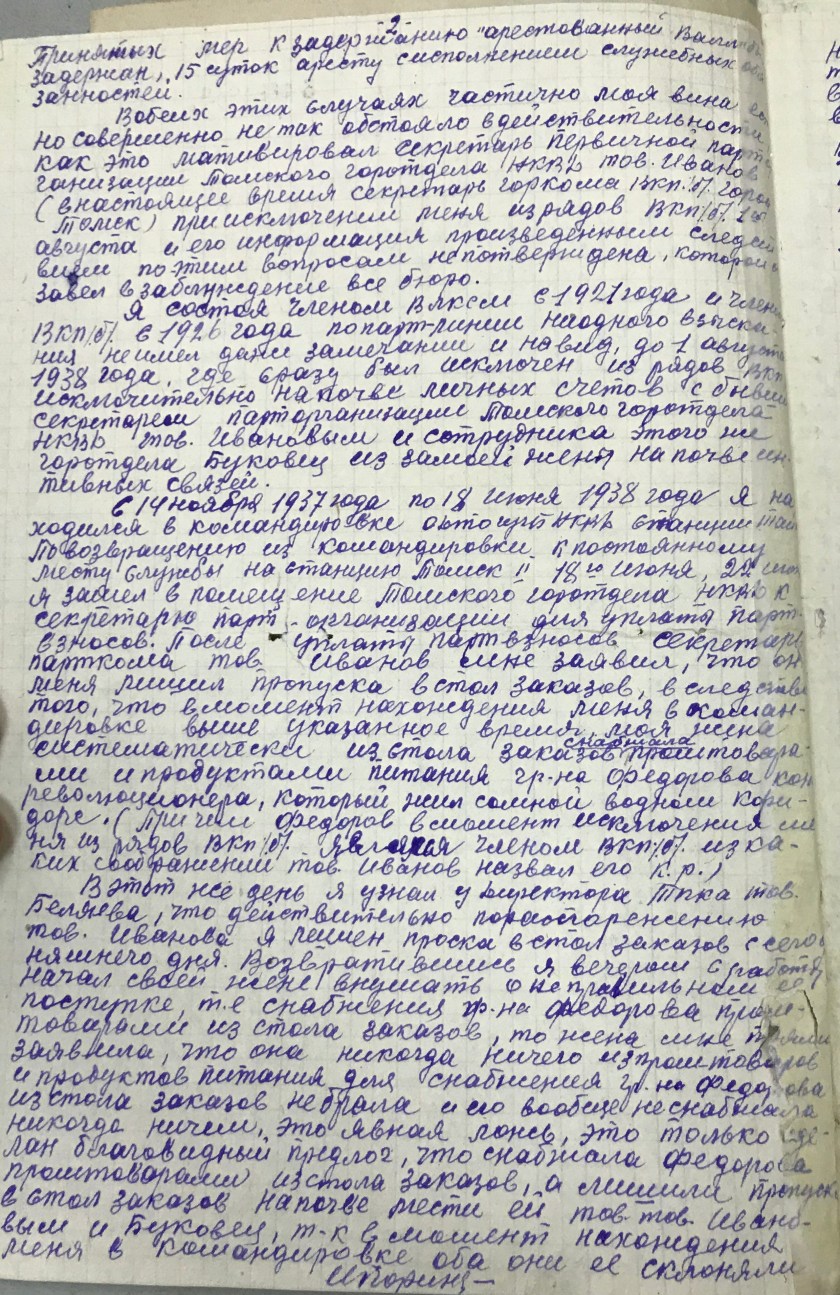 2
Принятых мер к задержанию "арестованный Валл
задержан, 15 суток аресту сисполнением служебных обя
занностей.
Вобеих этих случаях частично моя вина ес
но совершенно не так обстояло вдействительности
как это мативировал секретарь первичной парт
ганизации Томского горотдела НКВД тов. Иванов
(внастоящее время секретарь горкома ВКП/б/. горо
Томск) приисключении меня изрядов ВКП/б/. 1
августа и его информация произведенным следст
вием поэтим вопросам неподтверждена, которой
завел взаблуждение все бюро.
Я состоя членом ВЛКСМ с 1921 года и члени
ВКП/б/. с 1926 года попарт-линии ниодного взыска
ния неимел даже замечании и новид, до 1 августа
1938 года, где сразу был исключен из рядов ВКП
исключительно напочве личных счетов с бывши
секретарем парторганизации Томского горотдела
НКВД тов. Ивановым и сотрудника этого же
горотдела Буковец из замоей жены напочве ин-
тивных связей.
С 14 ноября 1937 года по 18 июня 1938 года я на
ходился в командировке НКВД станции Тай
Повозвращению из командировки кпостоянному
месту службы на станцию Томск II 18го июня, 22 июн
я зашел в помещение Томского горотдела НКВД к
секретарю парт-организации для уплаты парт-
взносов. После уплаты партвзносов секретарь
парткома тов. Иванов мне заявил, что он
меня лишил пропуска встол заказов, в следстви
того, что вмомент нахождения меня в коман-
дировке выше указанное время, моя жена
систематически из стола заказов снабжала промтовара-
ми и продуктами питания гр-на Федорова кон
революционера, который жил сомной водном кори-
доре. (Причем Федоров вмомент исключения ме
ня из рядов ВКП/б/. являлся членом ВКП/б/. изка-
ких соображении тов. Иванов назвал его к.р.)
Вэтот же день я узнал у директора Тпка тов.
Беляева, что действительно
тов. Иванова я лешен проска встол заказов с сего
няшнего дня. Возвратившись я вечером с работы
начал своей жене внушать онеправильном ее
поступке, т.е снабжения гр-на Федорова пром-
товарами из стола заказов, то жена мне прямо
заявила, что она никогда ничего изпромтоваров
и продуктов питания для снабжения гр-на Федорова
изстола заказов небрала и его вообще неснабжала
никогда ничем, это явная ложь, это только сде-
лан благовидный предлог, что снабжала Федорова
промтоварами изстола заказов, а лишили пропуск
в стол заказов напочве мести ей тов.тов. Ивано-
вым и Буковец, т-к вмомент нахождения
меня в командировке оба они ее склоняли